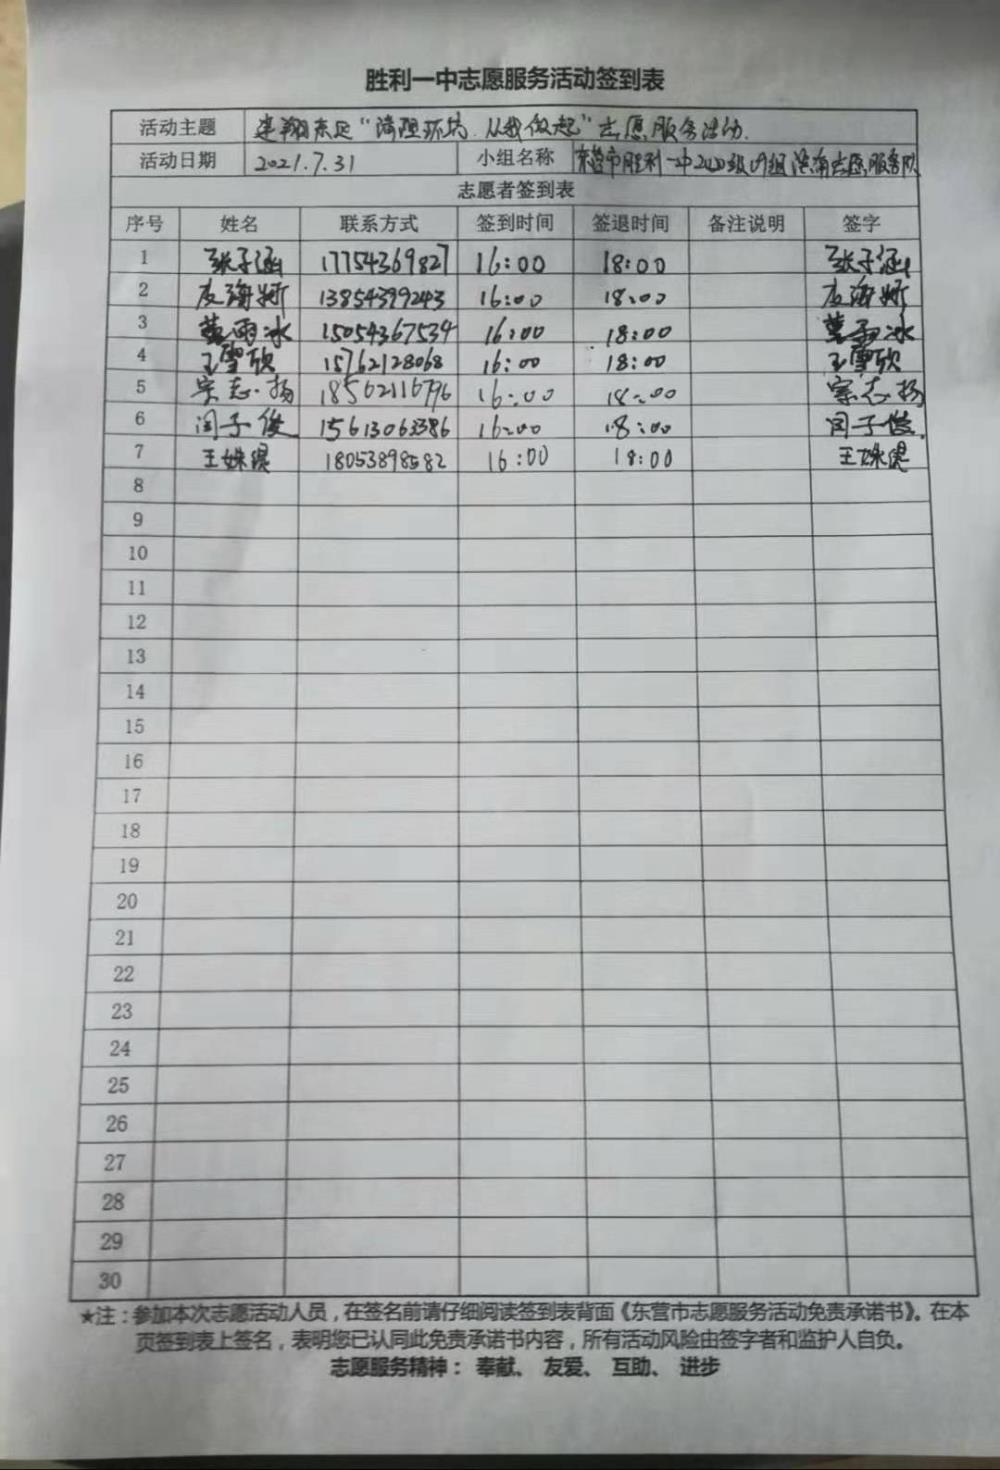 胜利一中志愿服务活动签到表
活动主题 建翔东区“清理环境.从我做起”志愿服务活动.
活动日期 2021.7.31 小组名称 东营市胜利一中2020级 志愿服务队
志愿者签到表
序号 姓名 联系方式 签到时间 签退时间 备注说明 签字
1 张子涵 17754369827 16:00 18:00 张子涵
2 海妍 13854399243 16:00 18:00 海妍
3 雨冰 15054367534 16:00 18:00 雨冰
4 王雪欣 15762128068 16:00 18:00 王雪欣
5 宗志扬 18562116796 16:00 18:00 宗志扬
6 闫子俊 15613063386 16:00 18:00 闫子俊.
7 王姝 18053898582 16:00 18:00 王姝
8
9
10
11
12
13
14
15
16
17
18
19
20
21
22
23
24
25
26
27
28
29
30
★注：参加本次志愿活动人员，在签名前请仔细阅读签到表背面《东营市志愿服务活动免责承诺书》。在本
页签到表上签名，表明您已认同此免责承诺书内容，所有活动风险由签字者和监护人自负。
志愿服务精神： 奉献、 友爱、 互助、 进步